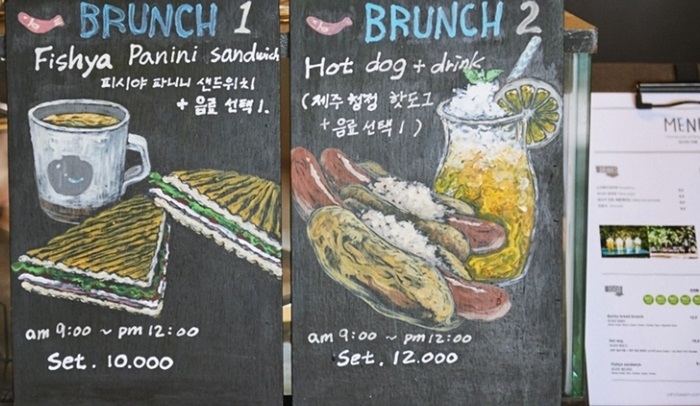 BRUNCH 1
Fishya Panini sandwich
피시야 파니니 샌드위치
+ 음료 선택 1.
am 9:00 ~ pm 12:00
Set. 10.000
BRUNCH 2
Hot dog + drink
(제주청정 핫도그
+ 음료 선택 1)
am 9:00 ~ pm 12:00
Set. 12.000
MENU